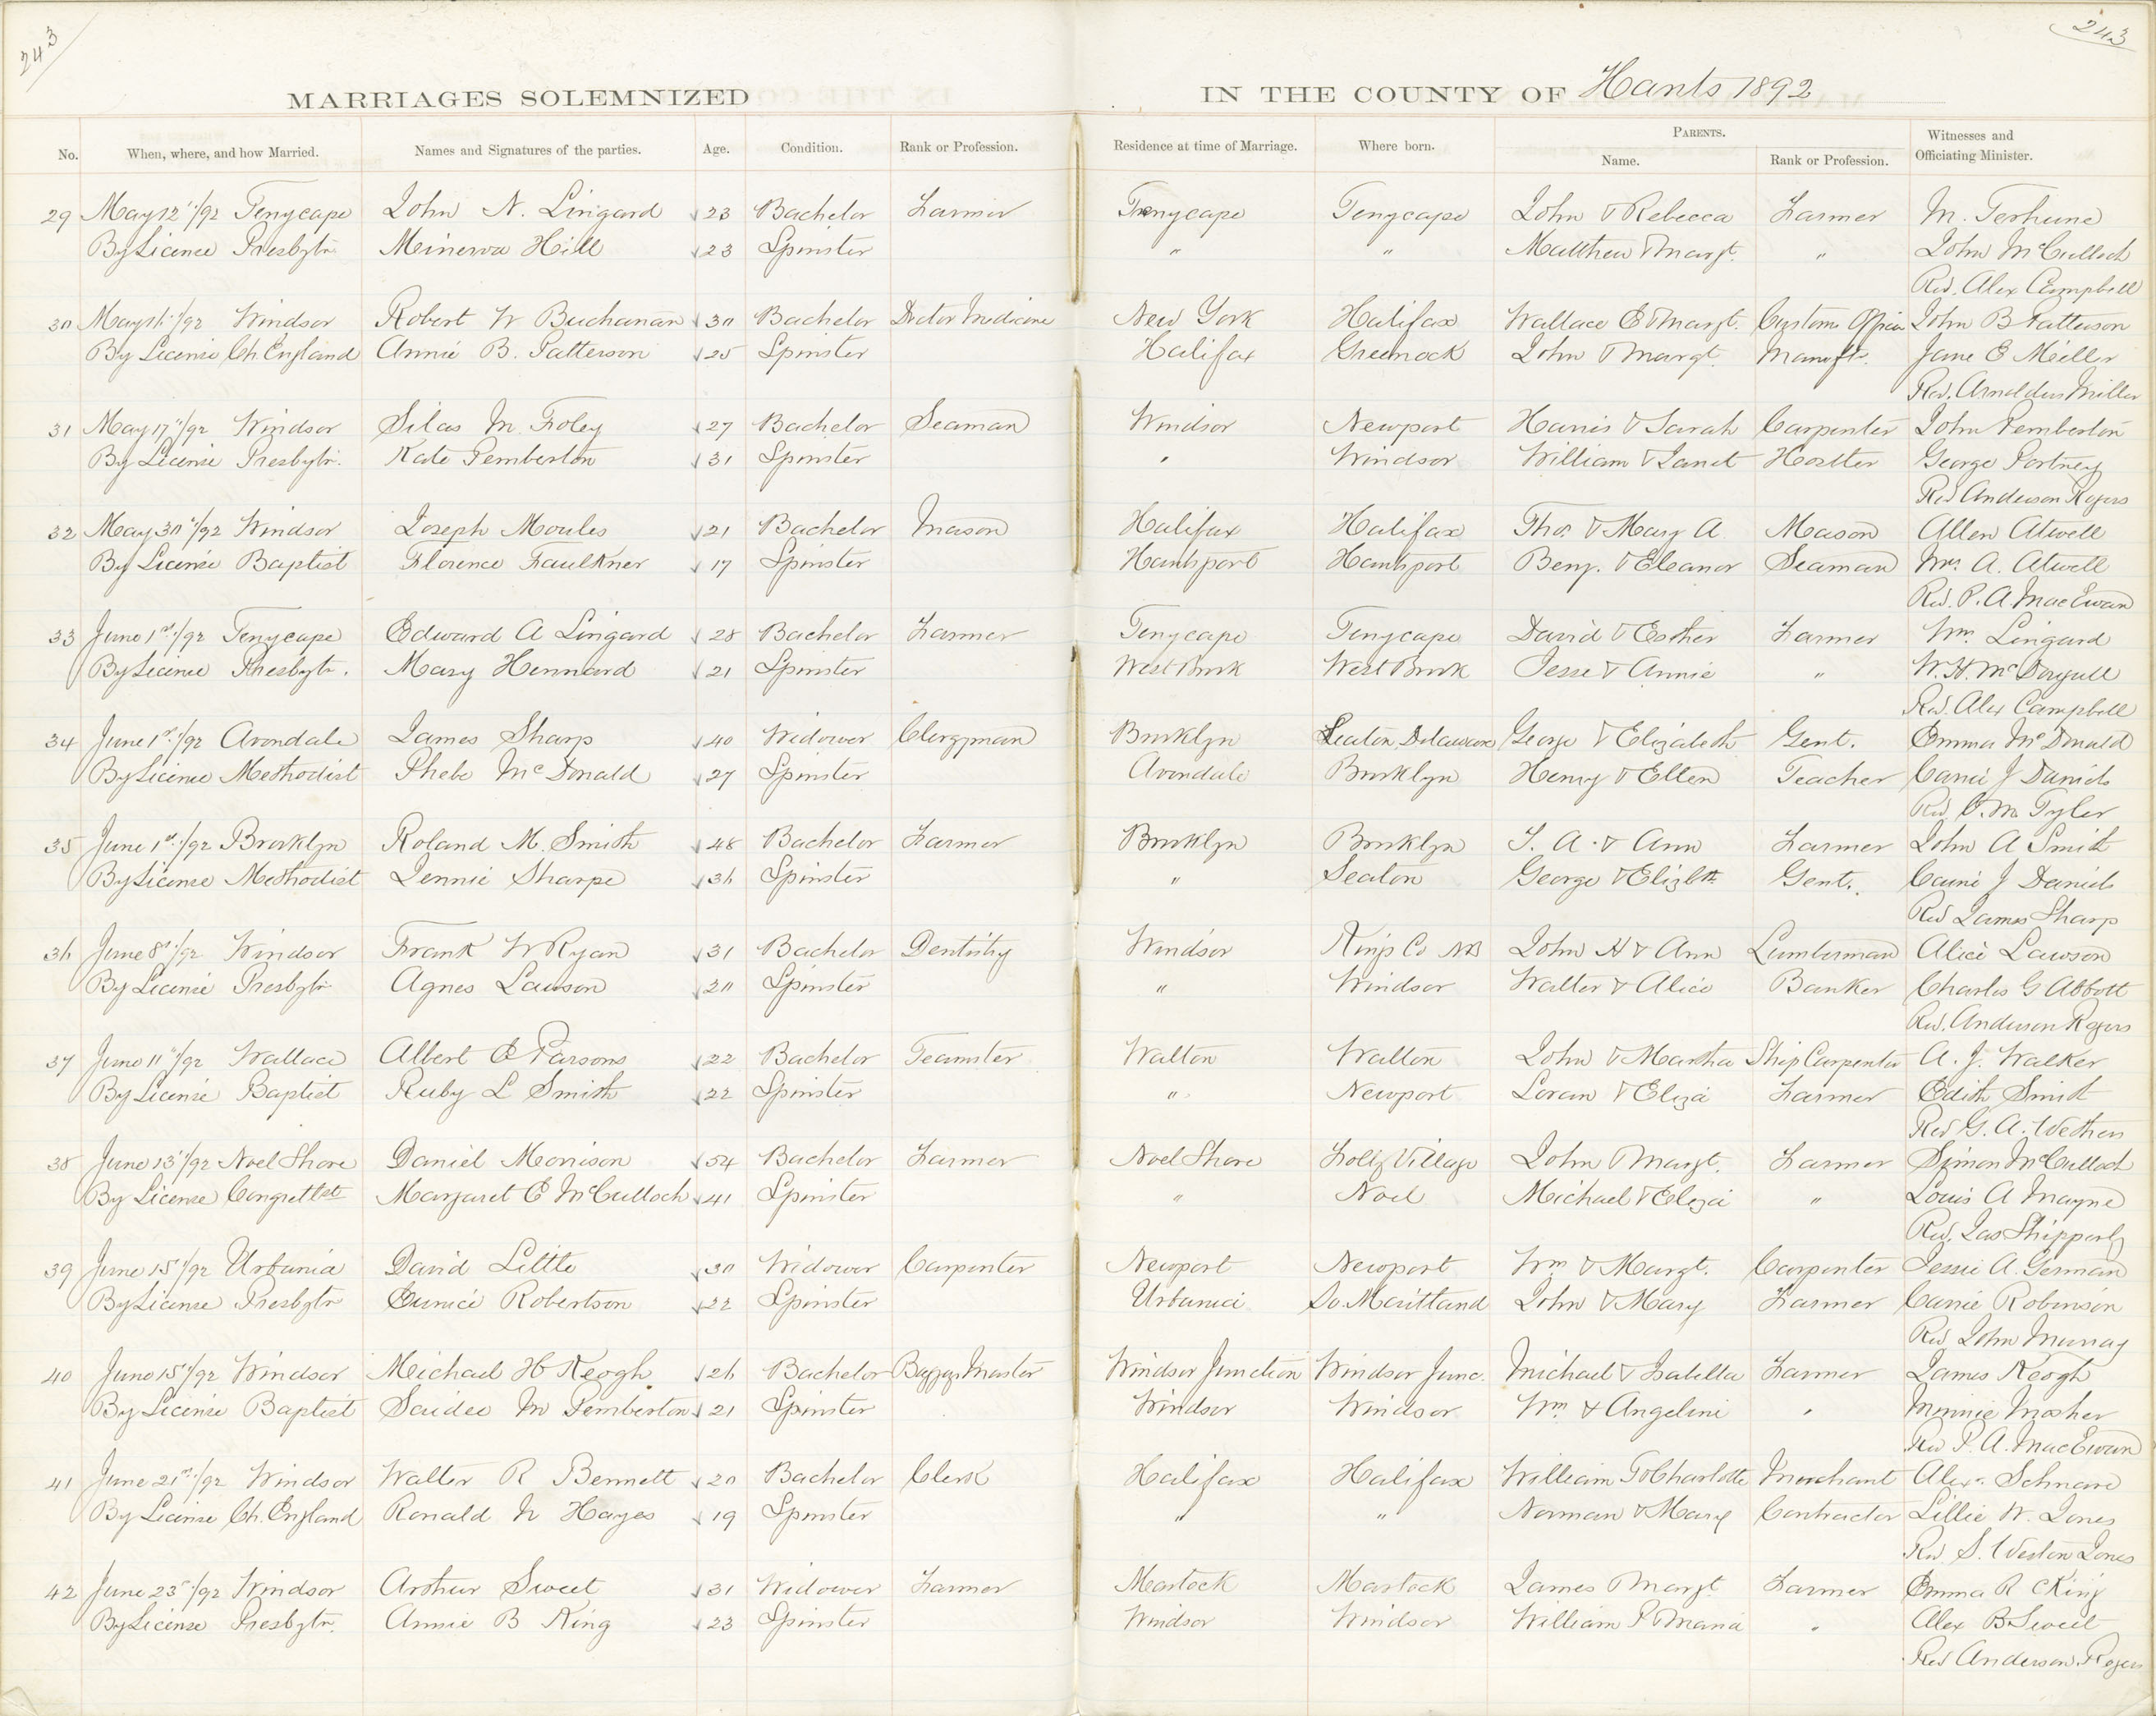 243
243
MARRIAGES SOLEMNIZED IN THE COUNTY OF Hants 1892
No. When, where, and how Married. Names and Signatures of the parties. Age. Condition. Rank or Profession. Residence at time of Marriage. Where born. PARENTS. Name. Rank or Profession. Witnesses and Officiating Minister.
29 May 12th/92 Tenycape John N. Lingard 23 Bachelor Farmer Tenycape Tenycape John & Rebecca Farmer M. Terhune
By Licence Presbytr. Minerva Hill 23 Spinster " " Matthew & Margt. " John McCulloch
Rev. Alex Campbell
30 May 16th/92 Windsor Robert W Buchanan 30 Bachelor Doctor Medicine New York Halifax Wallace E & Margt. Customs Officer John B Patterson
By License Ch. England Annie B. Patterson 25 Spinster Halifax Greenock John & Margt. Manuftr. Jane E Miller
Rev. Arnoldus Miller
31 May 17th/92 Windsor Silas M Foley 27 Bachelor Seaman Windsor Newport Harris & Sarah Carpenter John Pemberton
By License Presbytr. Kate Pemberton 31 Spinster " Windsor William & Janet Hostler George Portney
Rev Anderson Rogers
32 May 30th/92 Windsor Joseph Moules 21 Bachelor Mason Halifax Halifax Thos. & Mary A Mason Allen Atwell
By License Baptist Florence Faulkner 17 Spinster Hantsport Hantsport Benj. & Eleanor Seaman Mrs. A. Atwell
Rev. P. A. MacEwan
33 June 1st/92 Tenycape Edward A Lingard 28 Bachelor Farmer Tenycape Tenycape David & Esther Farmer Wm. Lingard
By Licence Presbytr. Mary Hennard 21 Spinster West Brook West Brook Jesse & Annie " W. H. McDougall
Rev. Alex Campbell
34 June 1st/92 Avondale James Sharp 40 Widower Clergyman Brooklyn Seaton, Delaware George & Elizabeth Gent. Emma McDonald
By License Methodist Phebe McDonald 27 Spinster Avondale Brooklyn Henry & Ellen Teacher Carrie J Daniels
Rev. C. M. Tyler
35 June 1st/92 Brooklyn Roland M. Smith 48 Bachelor Farmer Brooklyn Brooklyn J. A. & Ann Farmer John A Smith
By License Methodist Jennie Sharpe 36 Spinster " Seaton George & Elizbth Gent. Carrie J Daniels
Rev James Sharp
36 June 8th/92 Windsor Frank W Ryan 31 Bachelor Dentistry Windsor Kings Co NB John H & Ann Lumberman Alice Lawson
By License Presbytr Agnes Lawson 20 Spinster " Windsor Walter & Alice Banker Charles G Abbott
Rev. Anderson Rogers
37 June 11th/92 Wallace Albert E Parsons 22 Bachelor Teamster Walton Walton John & Martha Ship Carpenter A. J. Walker
By License Baptist Ruby L Smith 22 Spinster " Newport Loran & Eliza Farmer Edith Smith
Rev G. A. Wethers
38 June 13th/92 Noel Shore Daniel Morrison 54 Bachelor Farmer Noel Shore Folly Village John & Margt. Farmer Simon McCulloch
By License Congretlst Margaret E McCulloch 41 Spinster " Noel Michael & Eliza " Louis A Mayne
Rev. Jas Shipperly
39 June 15th/92 Urbania David Little 30 Widower Carpenter Newport Newport Wm & Margt. Carpenter Jessie A. German
By License Presbytr Eunice Robertson 22 Spinster Urbania So. Maitland John & Mary Farmer Carrie Robinson
Rev John Murray
40 June 15th/92 Windsor Michael H Keogh 26 Bachelor Baggage Master Windsor Junction Windsor Junc. Michael & Isabella Farmer James Keogh
By License Baptist Saidee M Pemberton 21 Spinster Windsor Windsor Wm & Angeline " Minnie Mosher
Rev P. A. MacEwan
41 June 21st/92 Windsor Walter R Bennett 20 Bachelor Clerk Halifax Halifax William G & Charlotte Merchant Alexr. Schnare
By License Ch. England Ronald N Hayes 19 Spinster " " Norman & Mary Contractor Lillie W. Jones
Rev S. Weston Jones
42 June 23rd/92 Windsor Arthur Sweet 31 Widower Farmer Martock Martock James & Margt. Farmer Emma R King
By License Presbytr. Annie B King 23 Spinster Windsor Windsor William P & Maria " Alex B Sweet
Rev Anderson Rogers